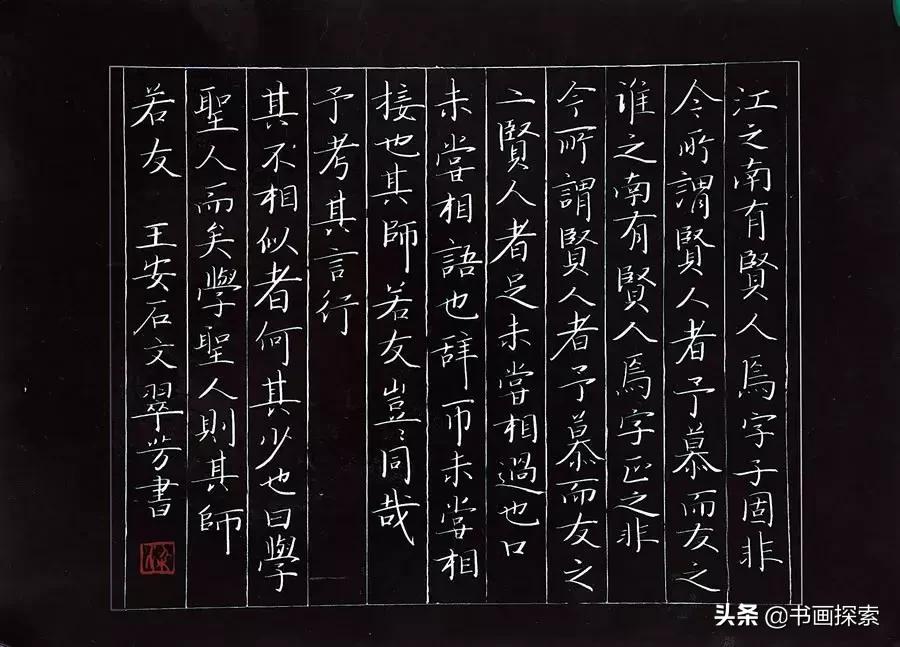 江之南有賢人焉字子固非
今所謂賢人者予慕而友之
淮之南有賢人焉字正之非
今所謂賢人者予慕而友之
二賢人者足未嘗相過也口
未嘗相語也辞币未嘗相
接也其師若友豈同哉
予考其言行
其不相似者何其少也曰學
聖人而矣學聖人則其師
若友 王安石文翠芳書
头条 @书画探索